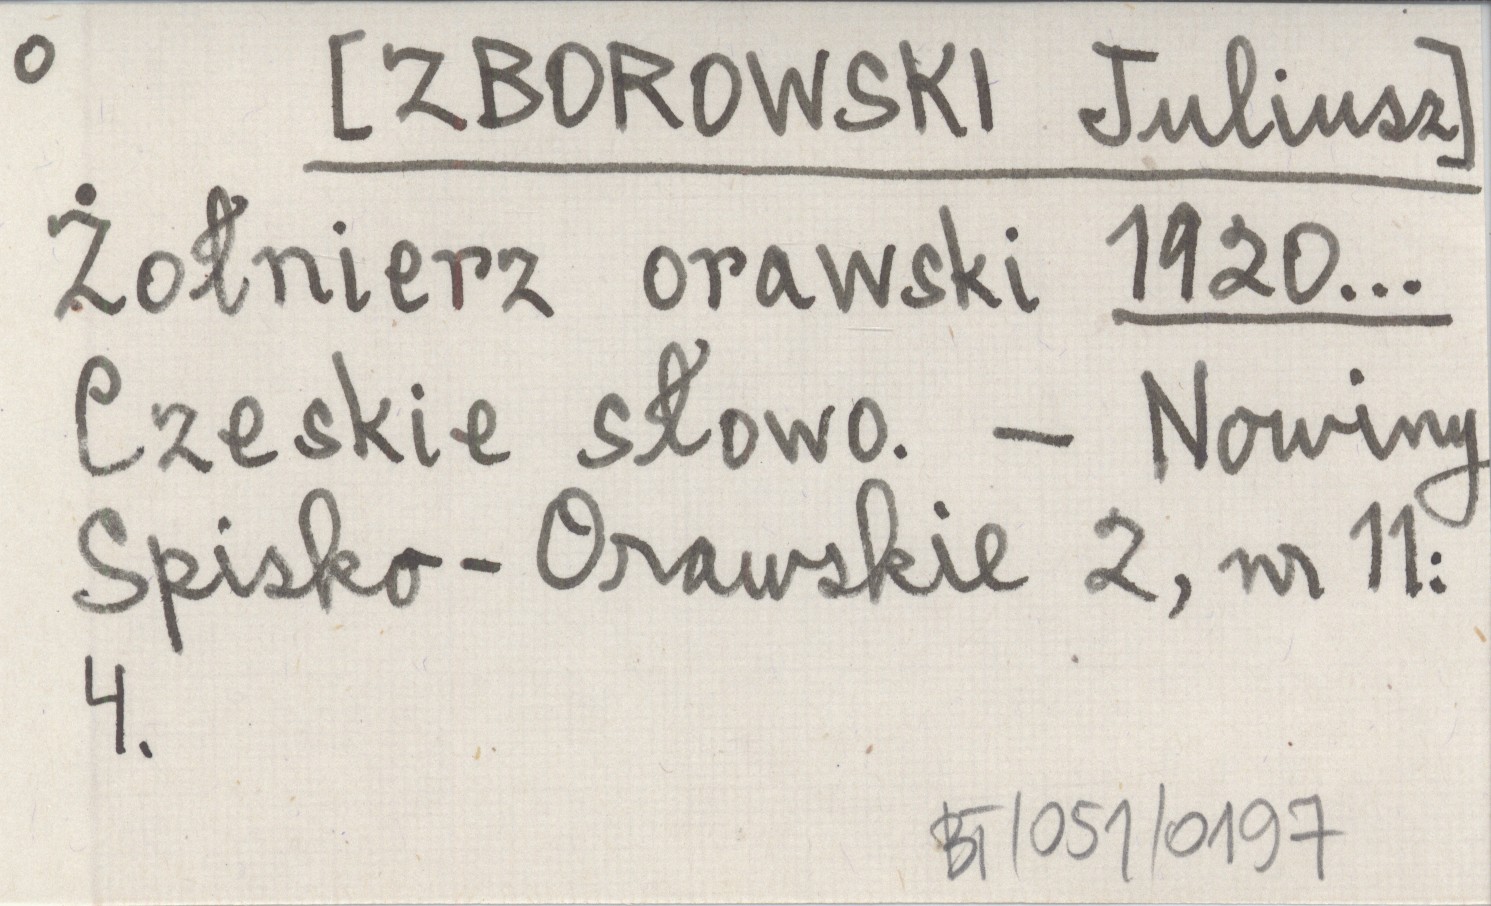 o [ZBOROWSKI Juliusz]
Żołnierz orawski 1920...
Czeskie słowo. – Nowiny
Spisko-Orawskie 2, nr 11:
4.
BT/051/0197